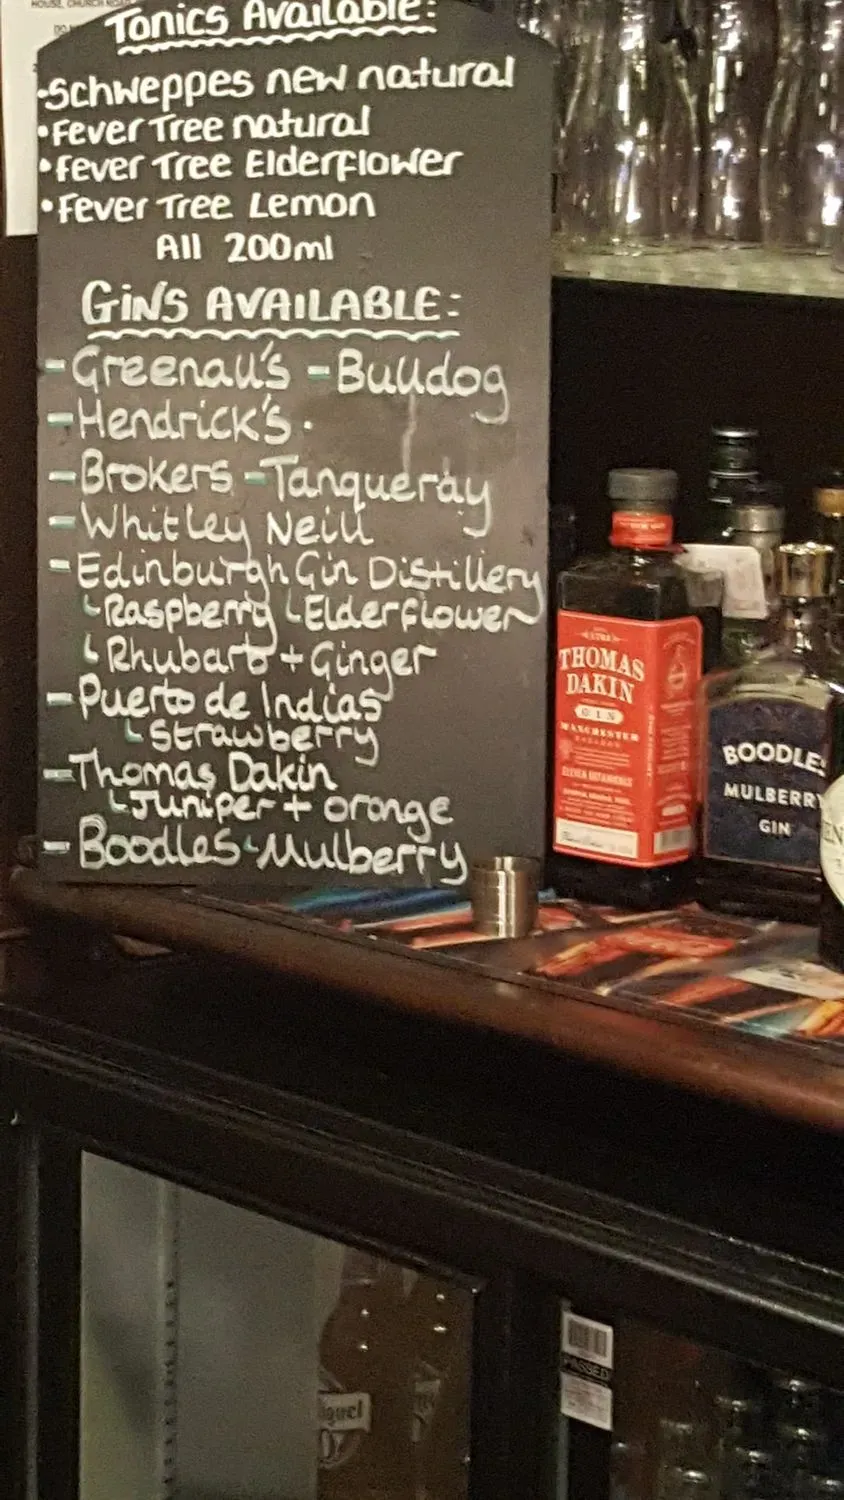 HOUSE, CHURCH ROAD
Tonics Available:
•Schweppes new natural
•Fever Tree natural
•Fever Tree Elderflower
•Fever Tree Lemon
All 200ml
GiNS AVAILABLE:
-Greenall's -Bulldog
-Hendrick's.
-Brokers -Tanqueray
-Whitley Neill
-Edinburgh Gin Distillery
Raspberry Elderflower
Rhubarb + Ginger
-Puerto de Indias
Strawberry
-Thomas Dakin
Juniper + orange
-Boodles Mulberry
THOMAS
DAKIN
GIN
MANCHESTER
ELEVEN BOTANICALS
BOODLES
MULBERRY
GIN
PASSED
iguel